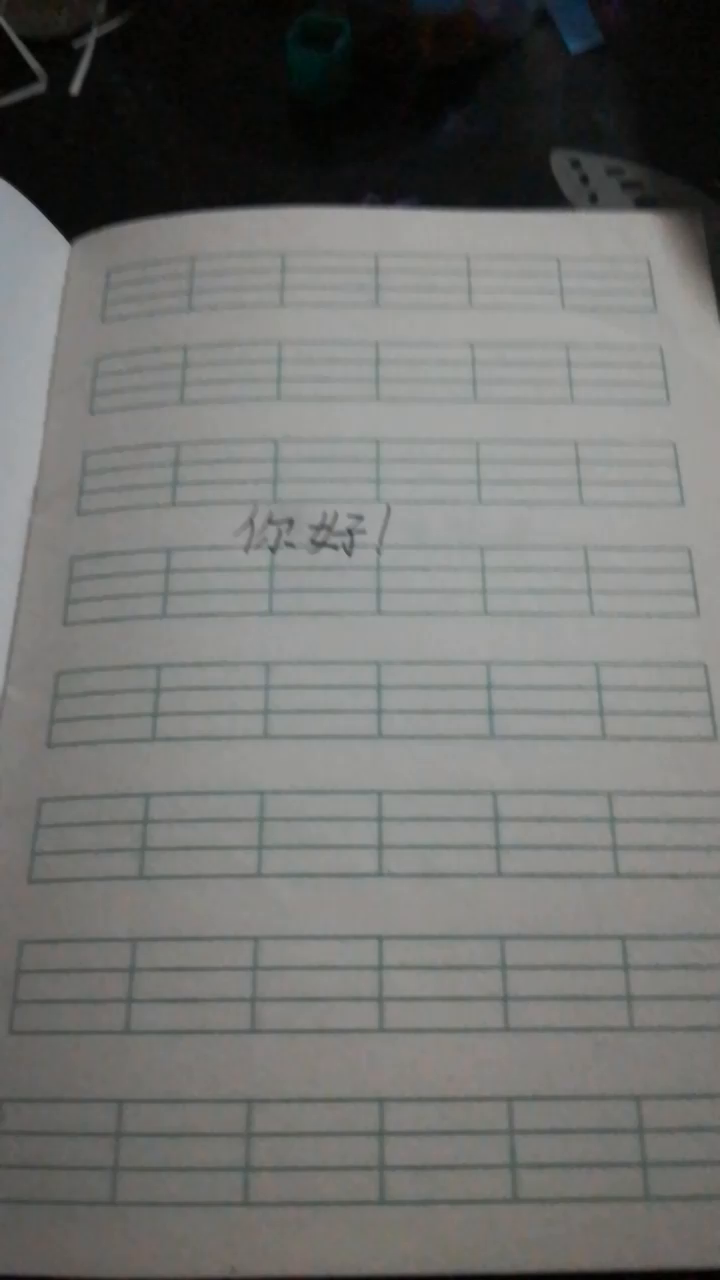 你好!